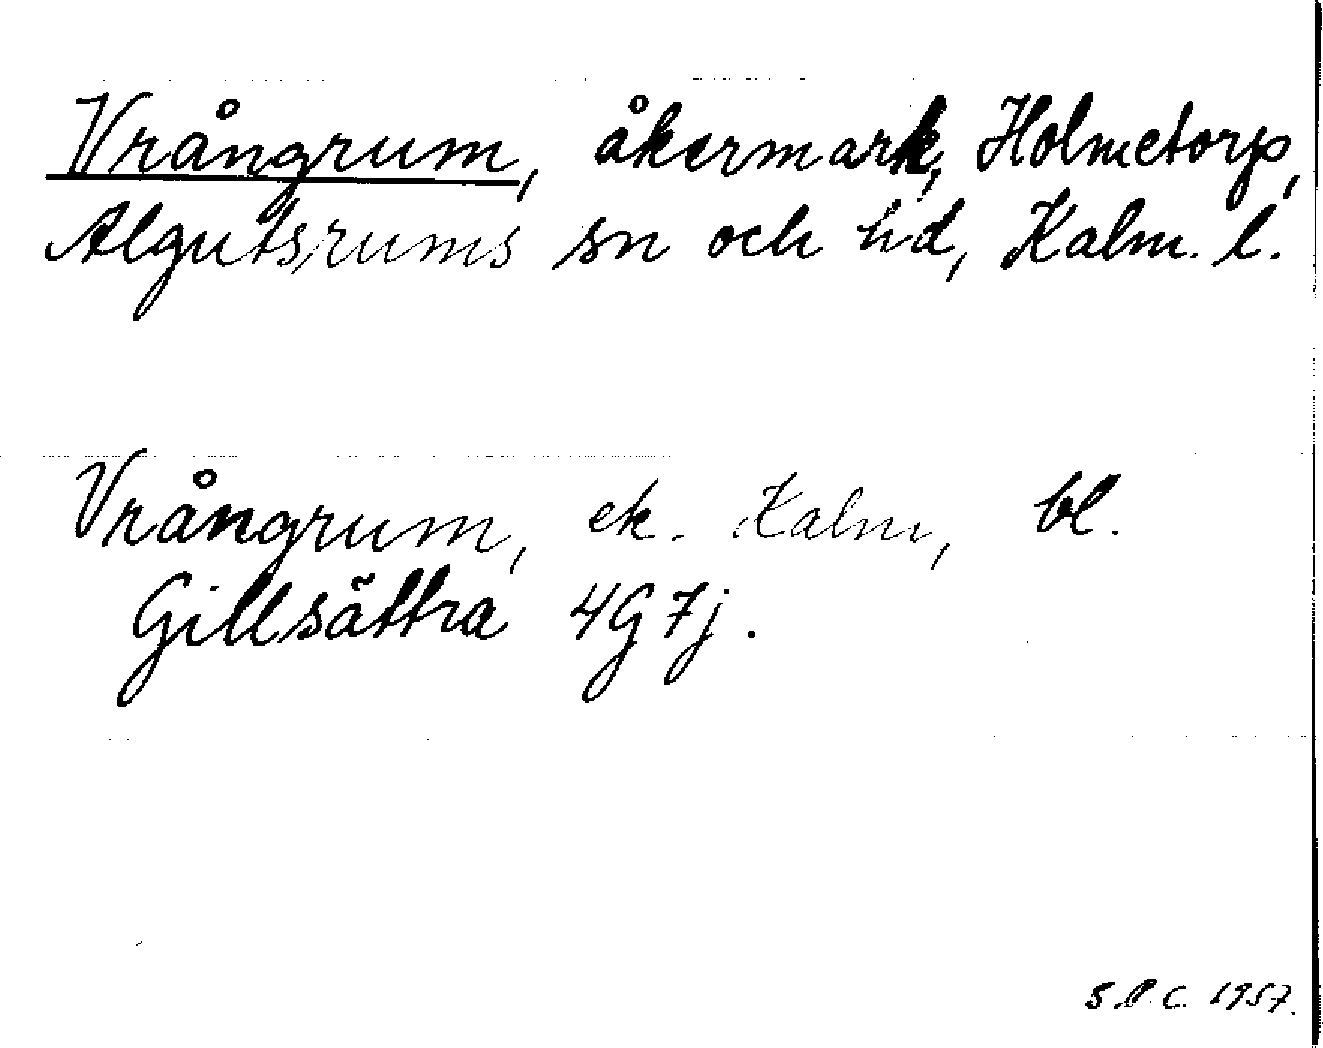 Vrångrum, åkermark, Holmetorp,
Algutsrums sn och hd, Kalm. l.
Vrångrum, ek. Kalm, bl.
Gillsättra 4G7j.
S.P.C. 1957.